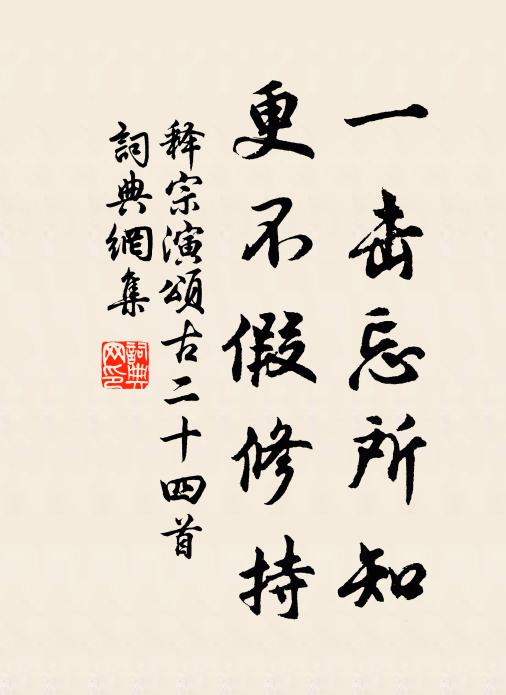 一击忘所知
更不假修持
释宗演頌古二十四首
詞典網集
詞典
网印